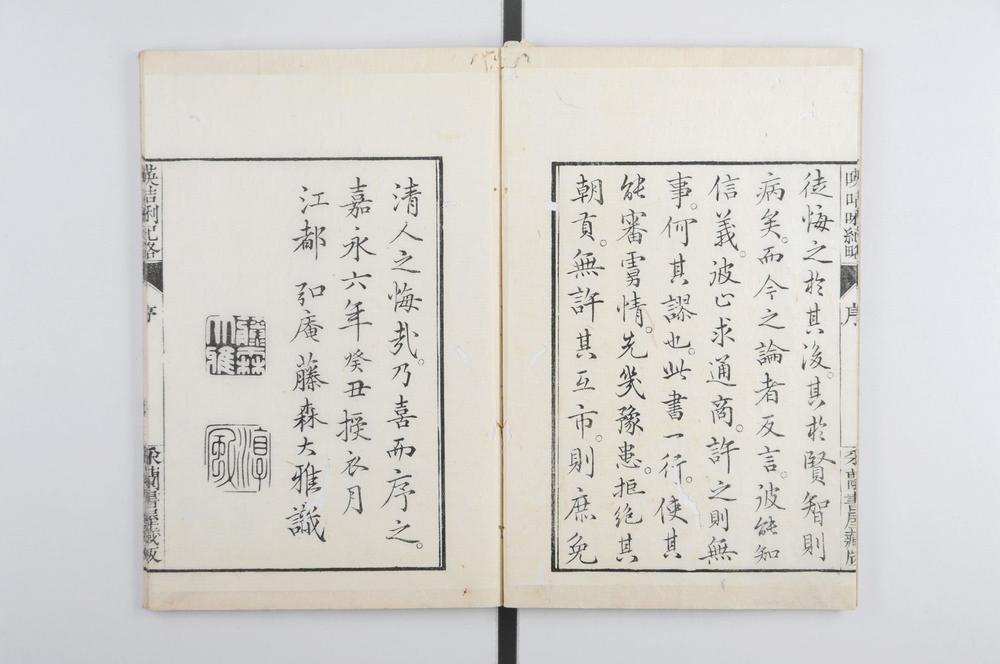 徒悔之於其後。其於賢智則
病矣。而今之論者反言。彼能知
信義。彼心求通商。許之則無
事。何其謬也。此書一行。使其
能審虜情。先幾豫患。拒絶其
朝貢。無許其互市。則庶免
清人之悔哉。乃喜而序之。
嘉永六年癸丑授衣月
江都 弘庵藤森大雅識
藤森
大雅
淳風
英吉利紀略
序